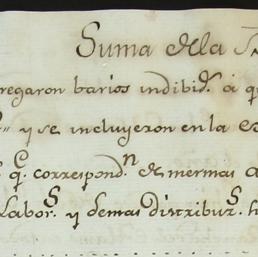 Suma de la
regaron barios indibid.s á q
y se incluyeron en la es
q.e correspond.n de mermas a
Labor.s y demas distribur.s h